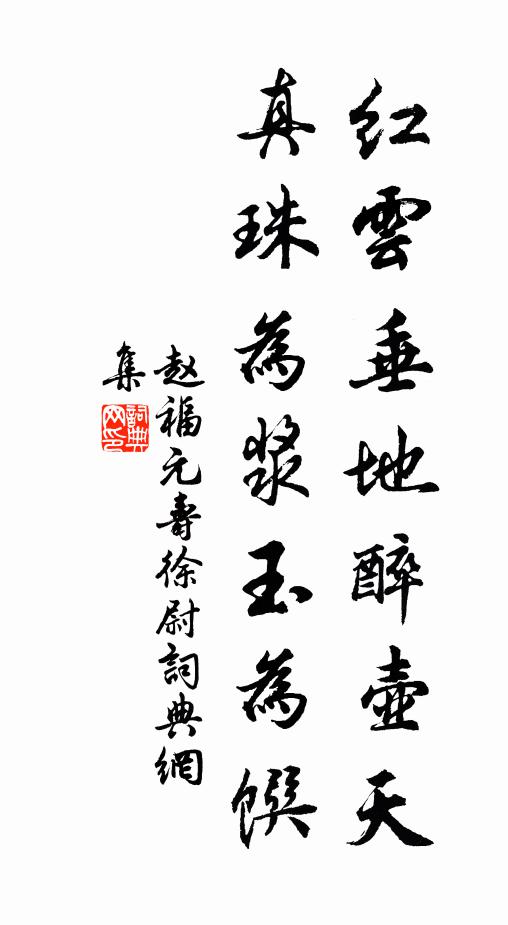 紅雲垂地醉壺天
真珠為漿玉為饌
赵福元壽徐尉詞典網
集
詞典网印